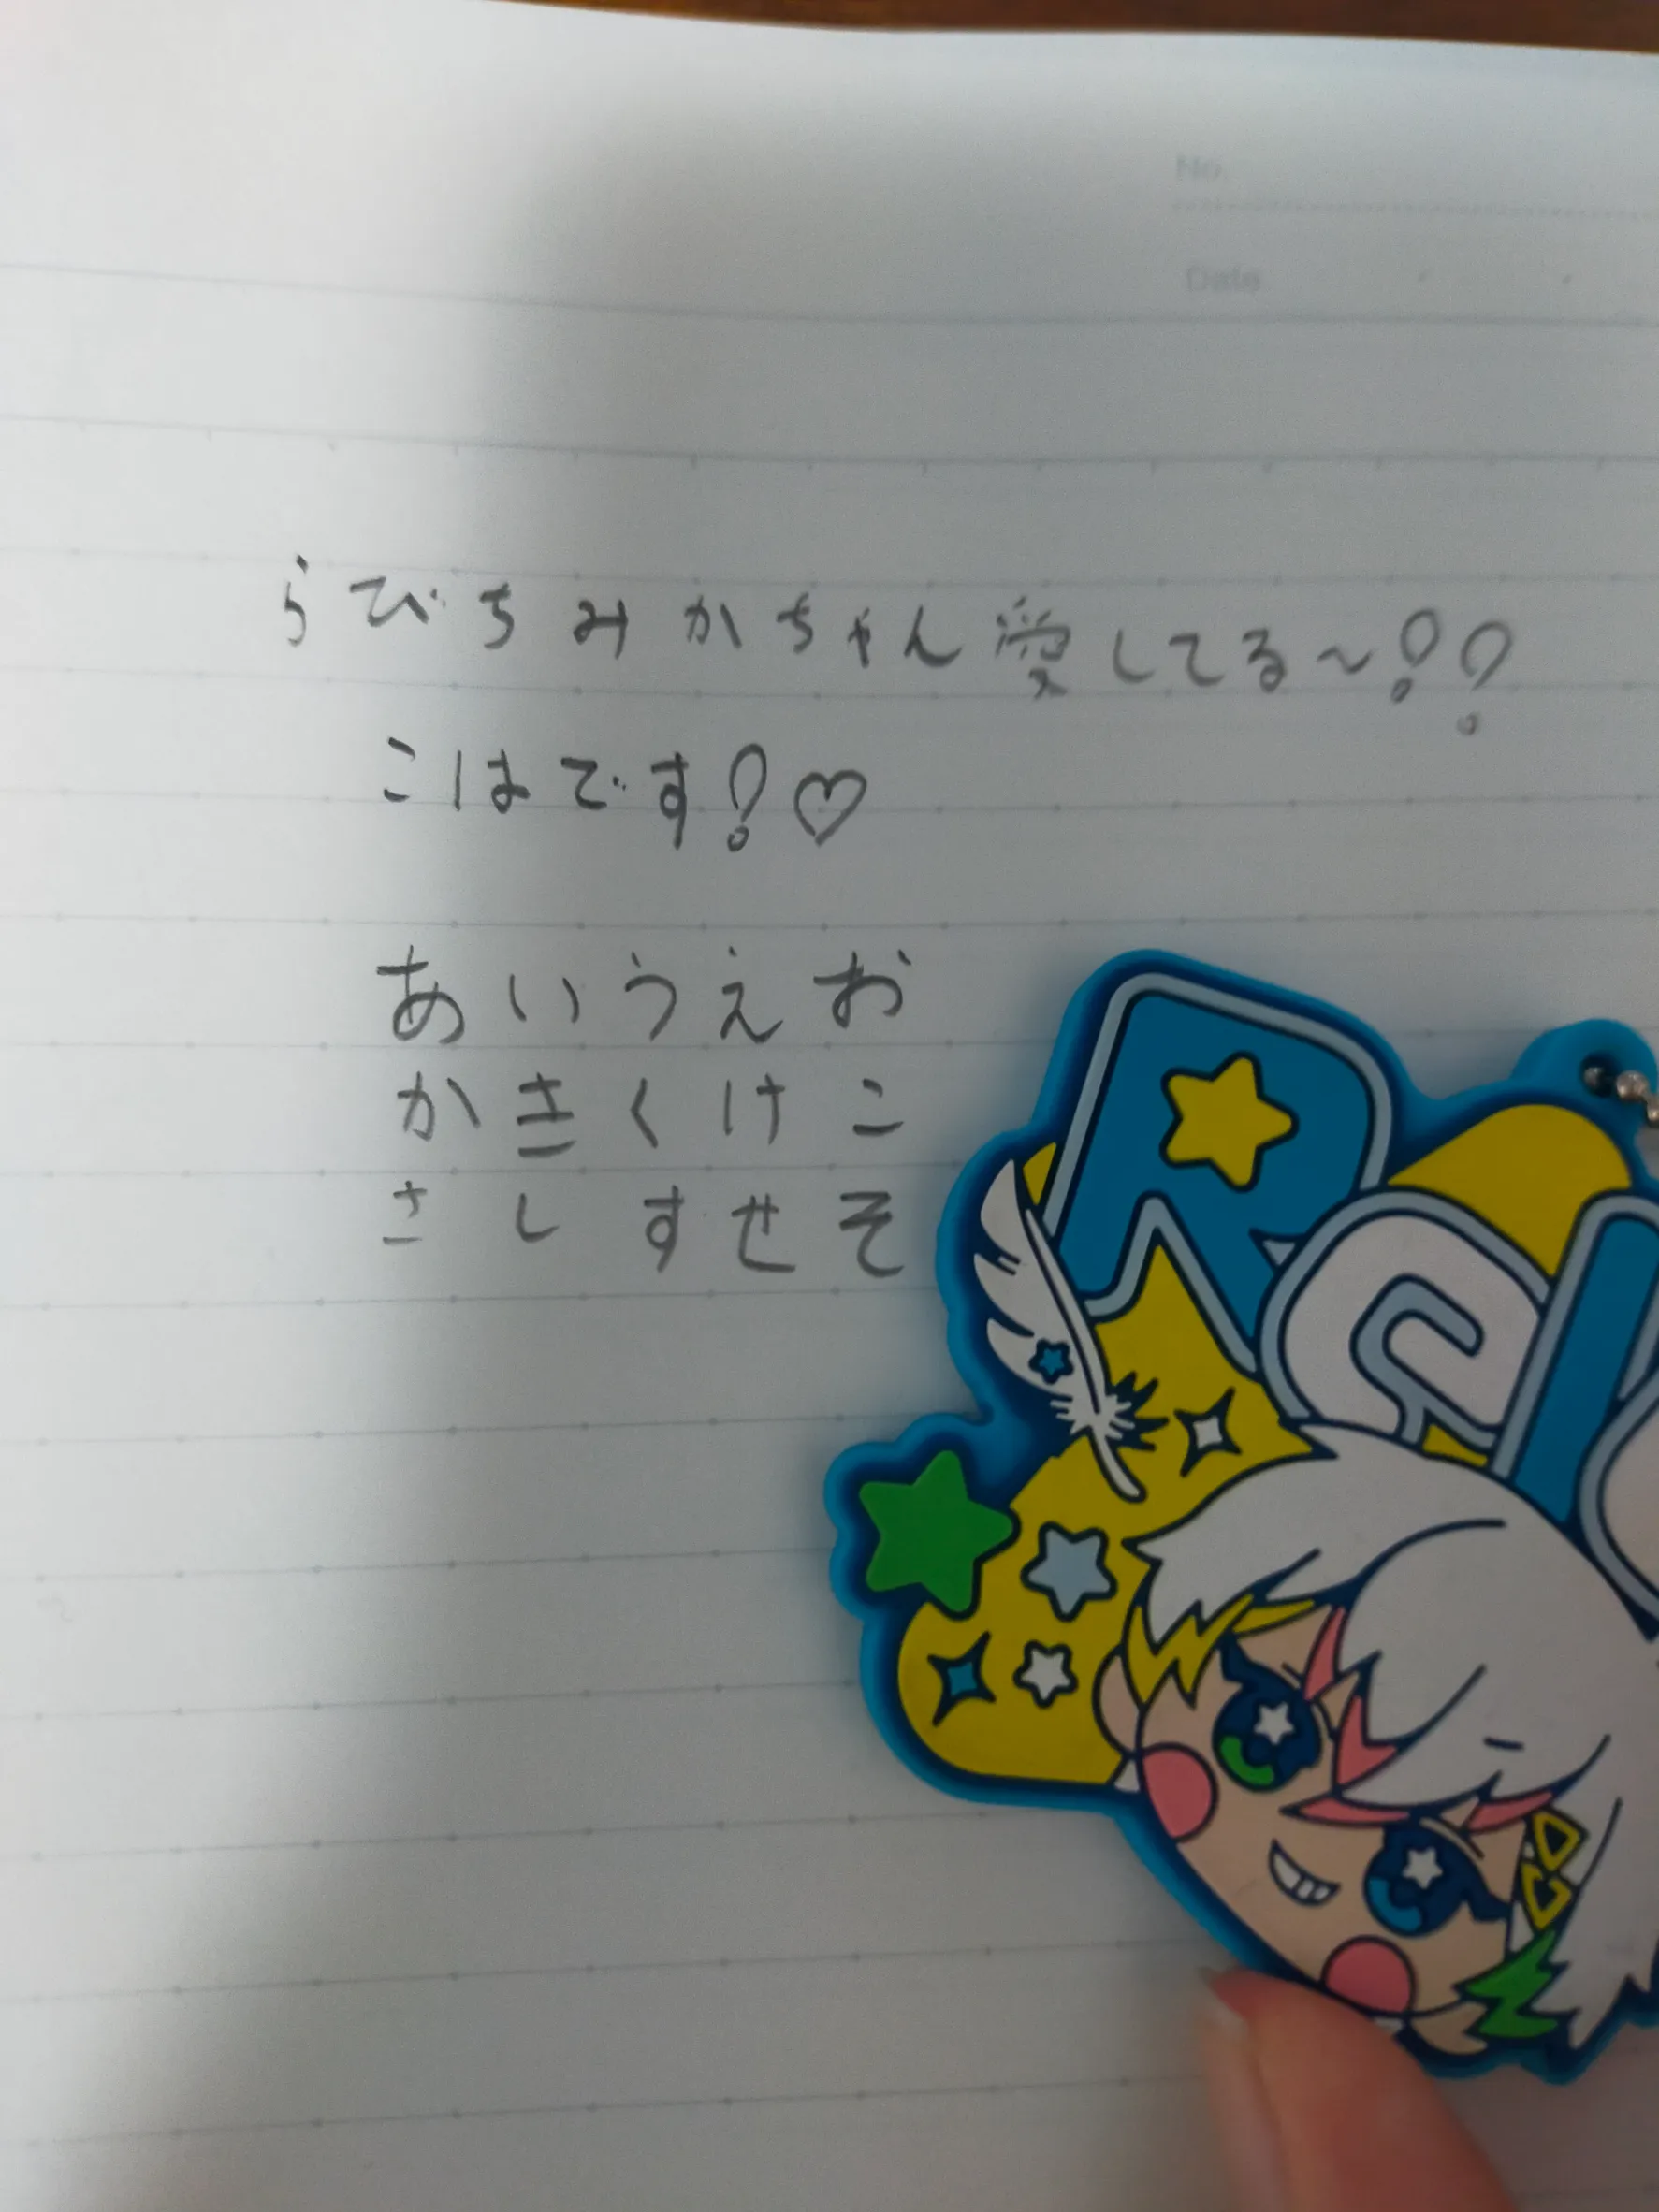 No.
Date
らびちみかちゃん愛してる～!!
こはです!♡
あいうえお
かきくけこ
さしすせそ
Rel